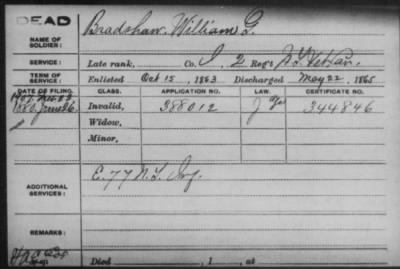 DEAD
NAME OF SOLDIER: Bradshaw, William G.
SERVICE: Late rank, Co. I, 2 Reg't N.Y. Vet Cav.
TERM OF SERVICE: Enlisted Oct 15, 1863 Discharged May 22, 1865
DATE OF FILING. CLASS. APPLICATION NO. LAW. CERTIFICATE NO.
1880, June 26. Invalid, 388012 344846
Widow,
Minor,
ADDITIONAL SERVICES: E. 77 N.Y. Inf.
REMARKS:
Died , 1 , at